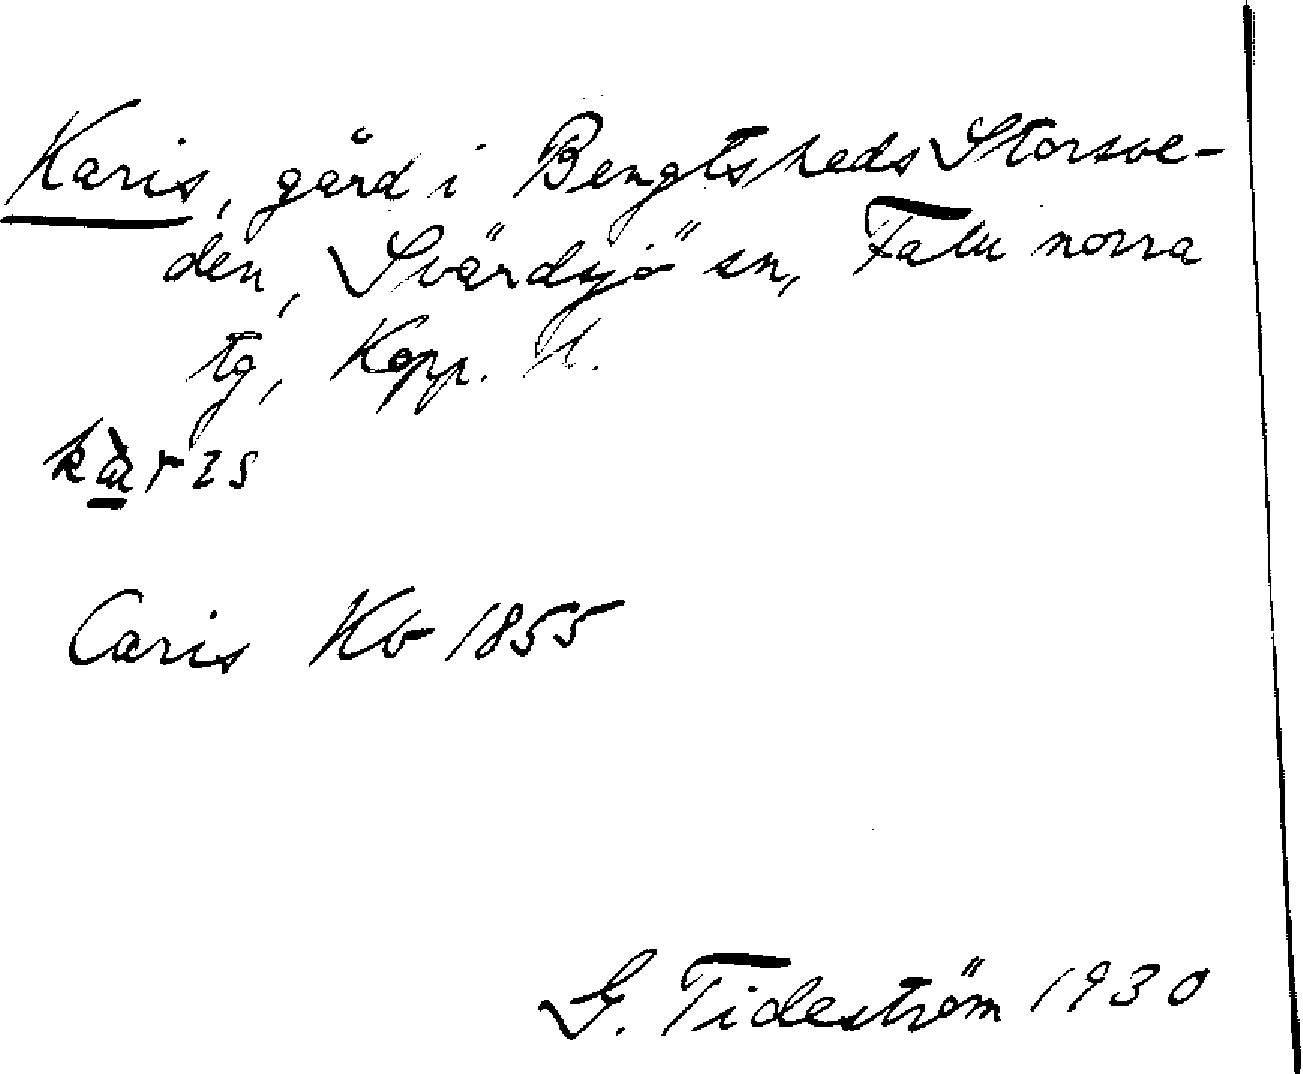 Karis, gård i Bengtsheds Storsve-
den, Svärdsjö sn, Falu norra
tg, Kopp. l.
Caris Kb 1855
G. Tideström 1930